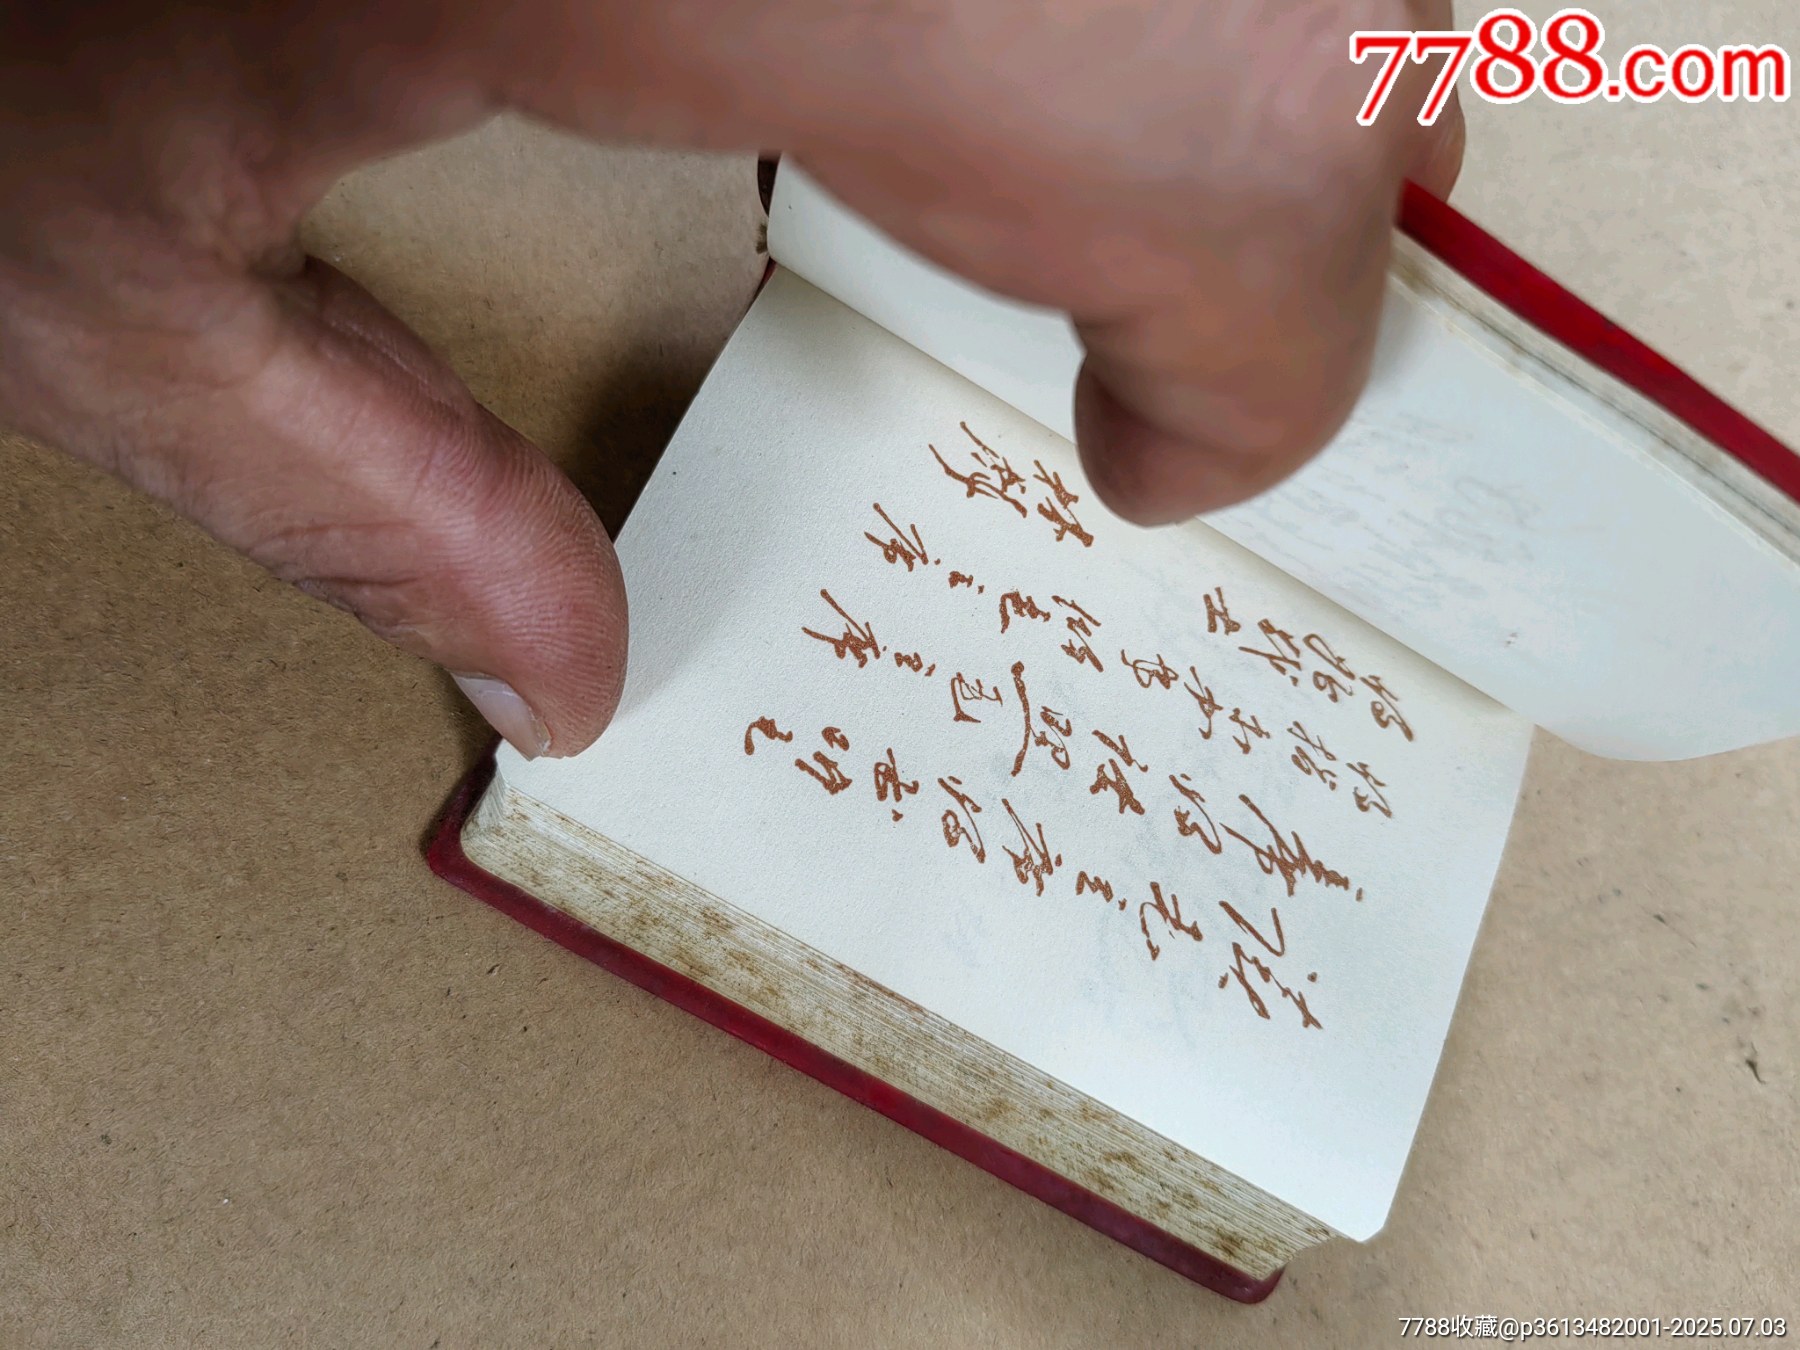 读毛主席的书,听毛
主席的话,照毛主席
的指示办事,做毛主席
的好战士
林彪
7788.com
7788收藏@p3613482001-2025.07.03